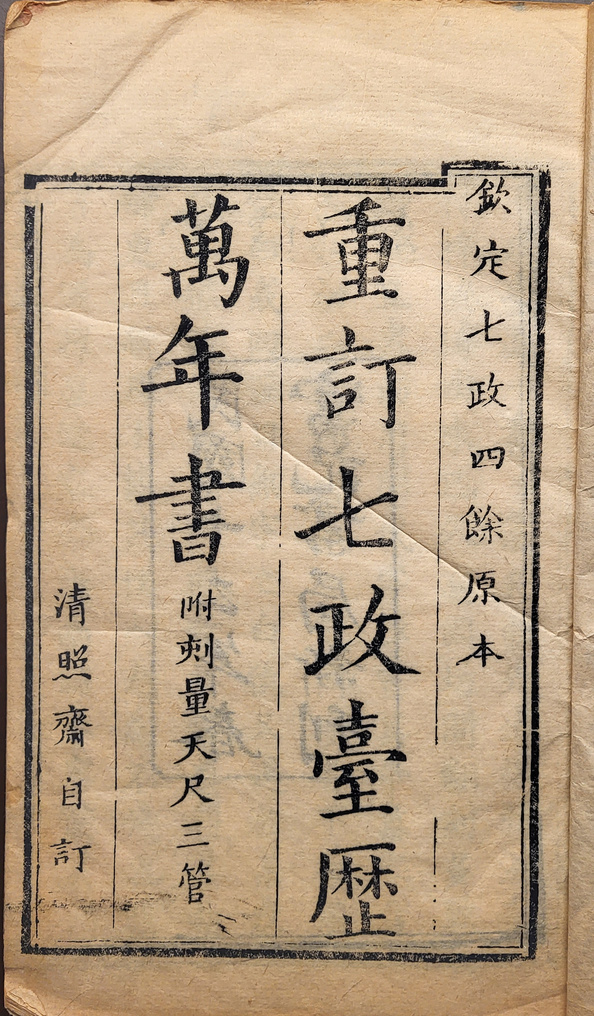 欽定七政四餘原本
重訂七政臺歷
萬年書
附刻量天尺三管
清照齋自訂